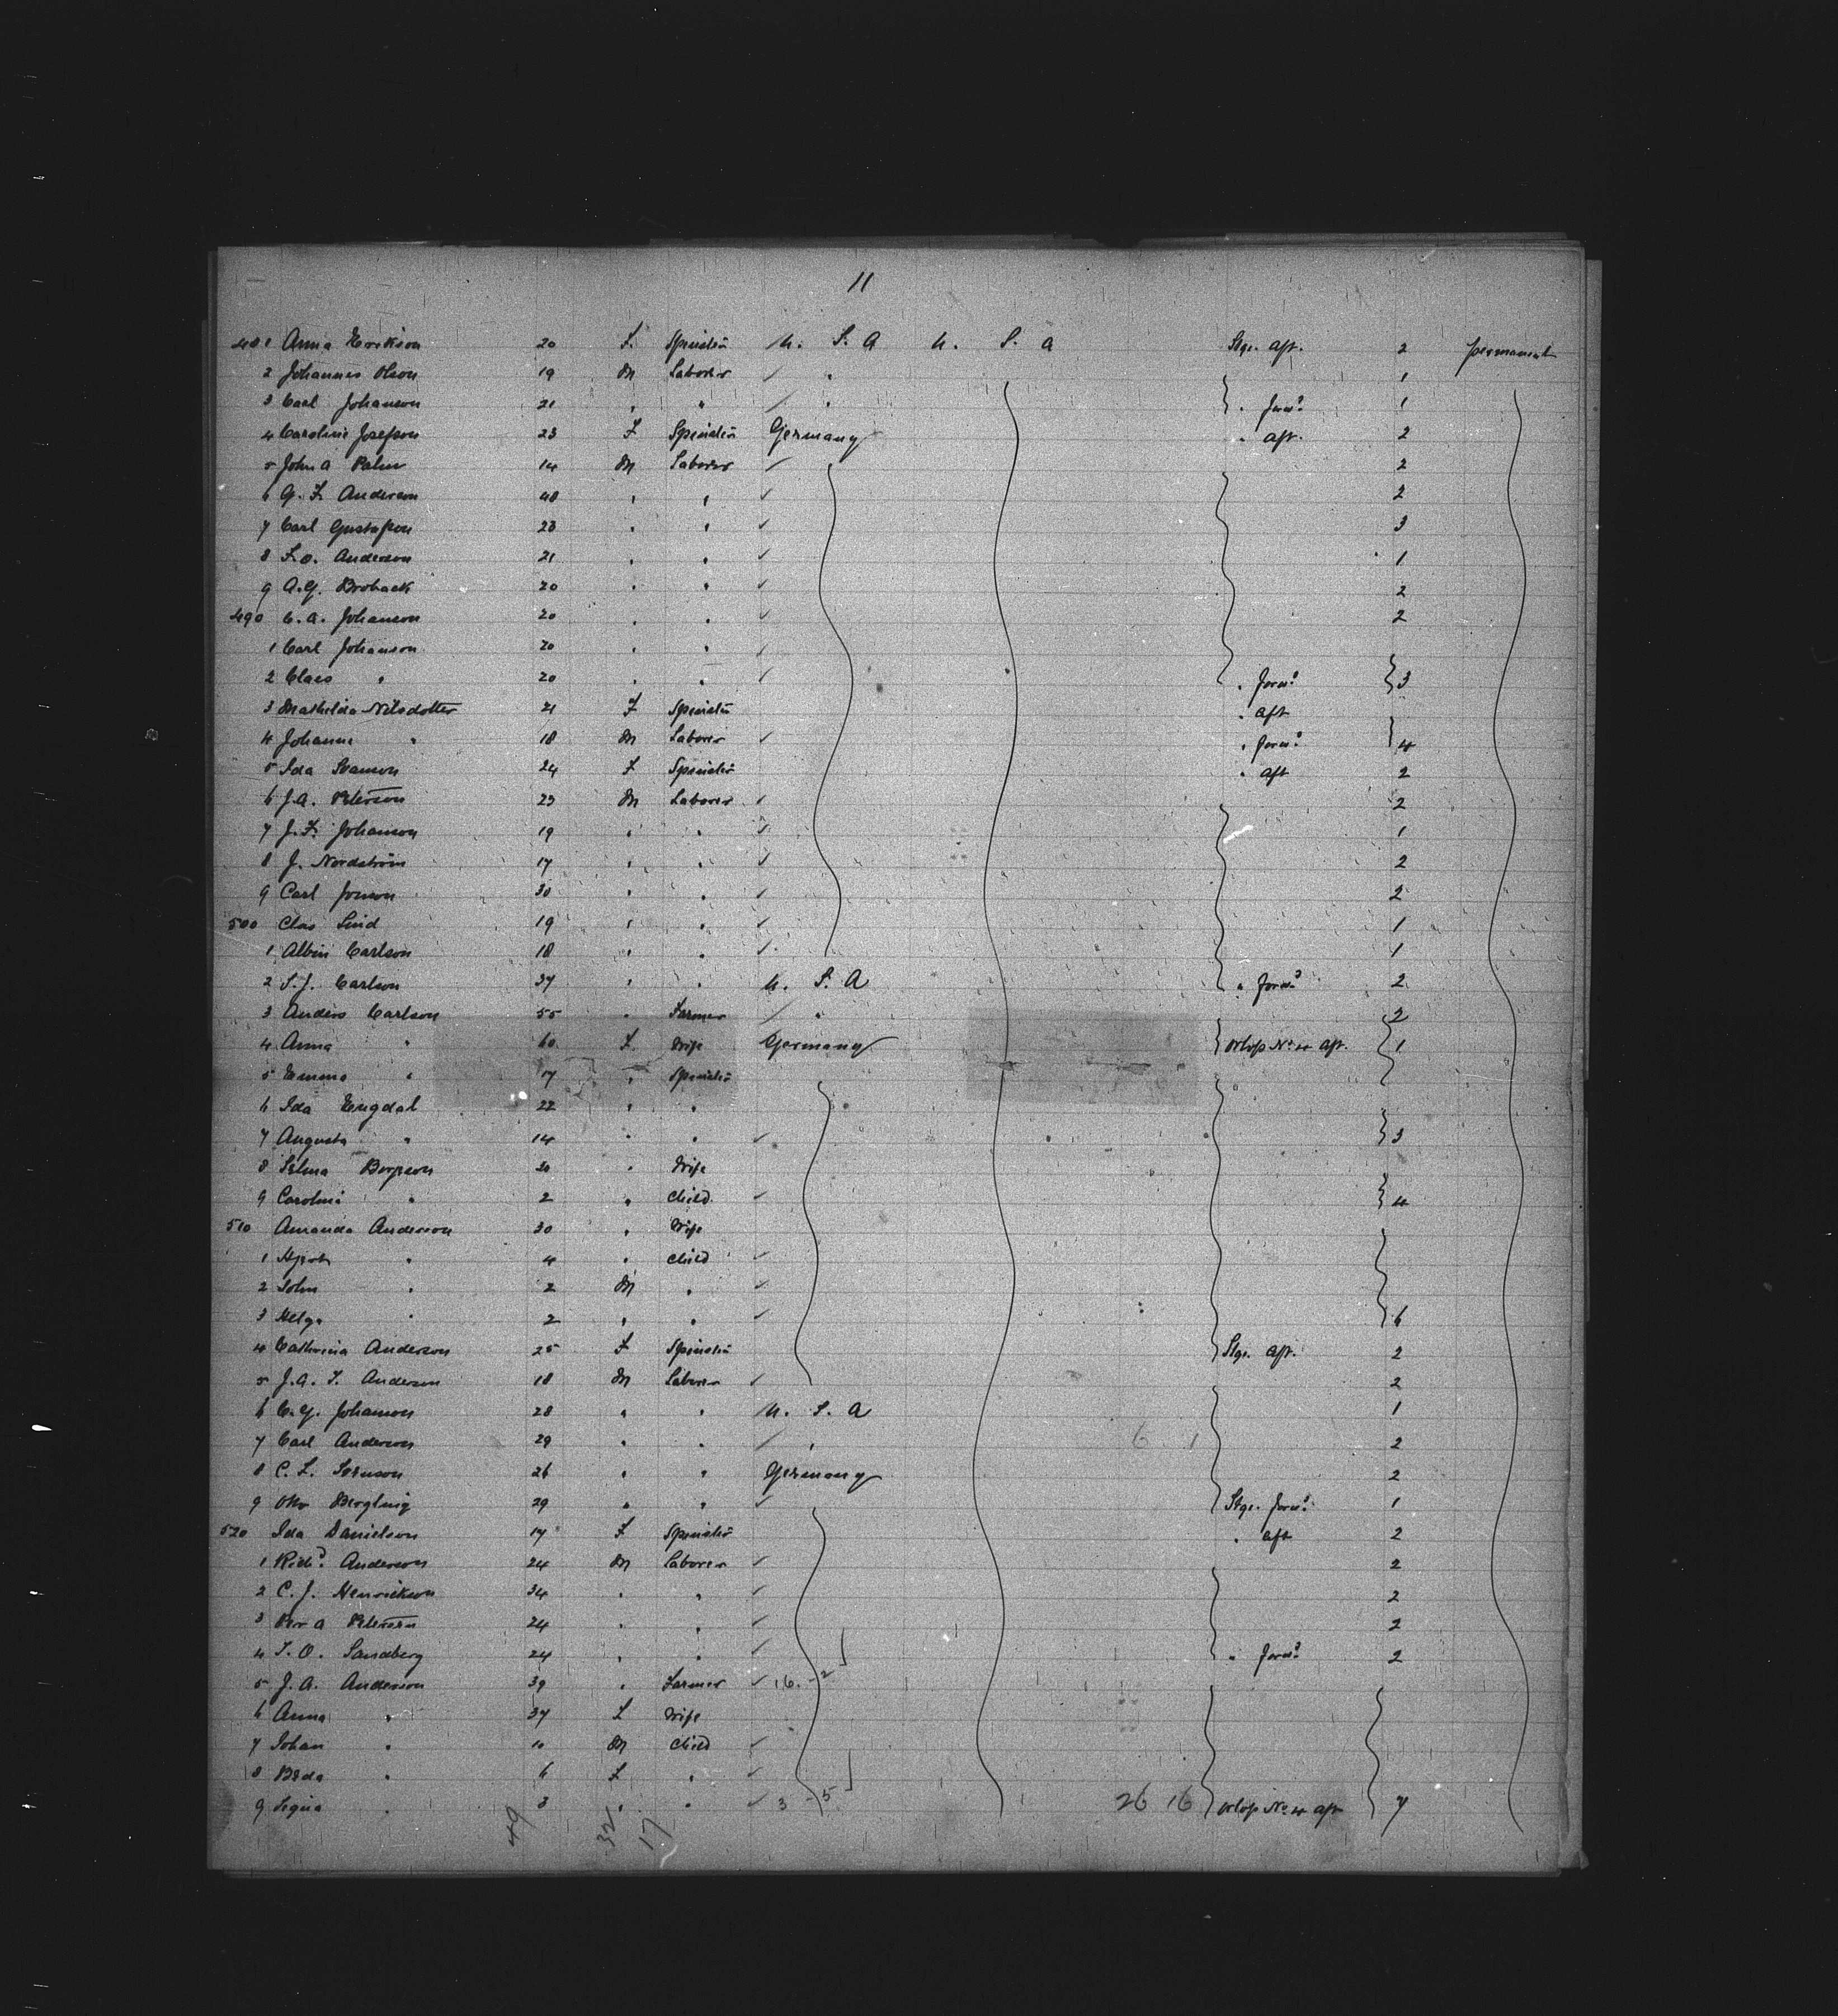 11
481 Anna Erickson 20 F. Spinster U. S. A U. S. A Stge. aft. 2 permanent
2 Johannes Olson 19 M Laborer " 1
3 Carl Johanson 21 " " " " forwd 1
4 Caroline Josefson 23 F Spinster Germany " aft. 2
5 John A Palm 14 M Laborer 2
6 G. F. Anderson 40 " " 2
7 Carl Gustafson 23 " " 3
8 F. O. Anderson 21 " " 1
9 A. G. Broback 20 " " 2
490 C. A. Johanson 20 " " 2
1 Carl Johanson 20 " "
2 Claes " 20 " " " forwd 3
3 Mathilda Nilsdotter 21 F Spinster " aft
4 Johanne " 18 M Laborer " forwd 4
5 Ida Svanson 24 F Spinster " aft 2
6 J. A. Peterson 23 M Laborer 2
7 J. F. Johanson 19 " " 1
8 J. Nordström 17 " " 2
9 Carl Jonson 30 " " 2
500 Clas Lind 19 " " 1
1 Albin Carlson 18 " " 1
2 S. J. Carlson 37 " " U. S. A " forwd 2
3 Anders Carlson 55 " Farmer " 2
4 Anna " 60 F. Wife Germany Orlop No 4 aft. 1
5 Emma " 17 " Spinster
6 Ida Engdal 22 " "
7 Augusta " 14 " " 3
8 Selma 20 " Wife
9 Carolina " 2 " Child 4
510 Amanda Anderson 30 " Wife
1 " 4 " Child
2 John " 2 M "
3 Helge " 2 " " 6
4 Cathrina Anderson 25 F Spinster Stge. aft. 2
5 J. A. T. Anderson 18 M Laborer 2
6 C. G. Johanson 28 " " U. S. A 1
7 Carl Anderson 29 " " " 6 1 2
8 C. L. 26 " " Germany 2
9 Otto Bergling 29 " " Stge. forwd 1
520 Ida Danielson 17 F Spinster " aft 2
1 Richd Anderson 24 M Laborer 2
2 C. J. Henrickson 34 " " 2
3 Per A Peterson 24 " " 2
4 T. O. Sandberg 24 " " " forwd 2
5 J. A. Anderson 39 " Farmer 16 - 2
6 Anna " 37 F Wife
7 Johan " 10 M Child
8 Beda " 6 F "
9 Signa " 3 " " 3 - 5 26 16 Orlop No 4 aft 7
49 32 17